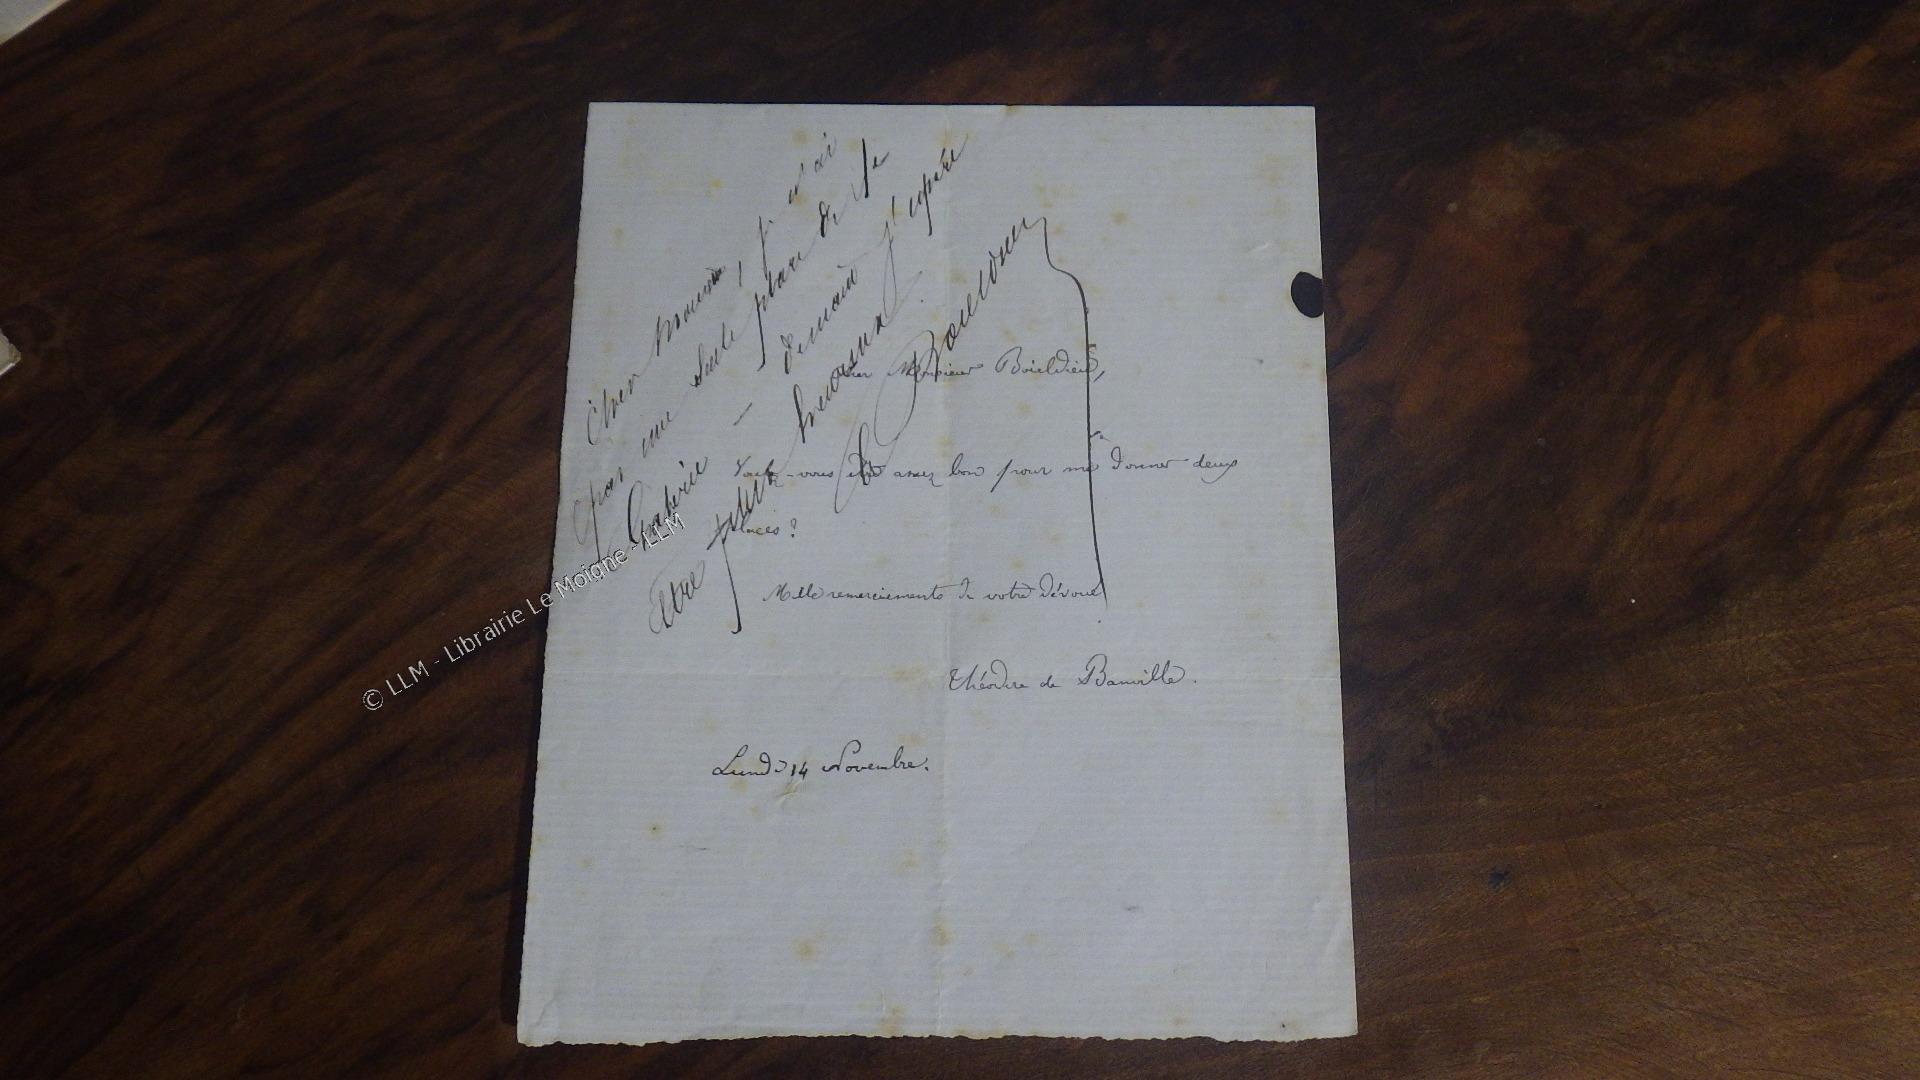 Cher Monsieur, je n'ai
pas une seule place de
Galerie — demain j'espère
être plus heureux.
Boieldieu
Cher Monsieur Boieldieu,
Voulez-vous être assez bon pour me donner deux
places?
Mille remerciements de votre dévoué
Théodore de Banville.
Lundi 14 Novembre.
© LLM - Librairie Le Moigne - LLM